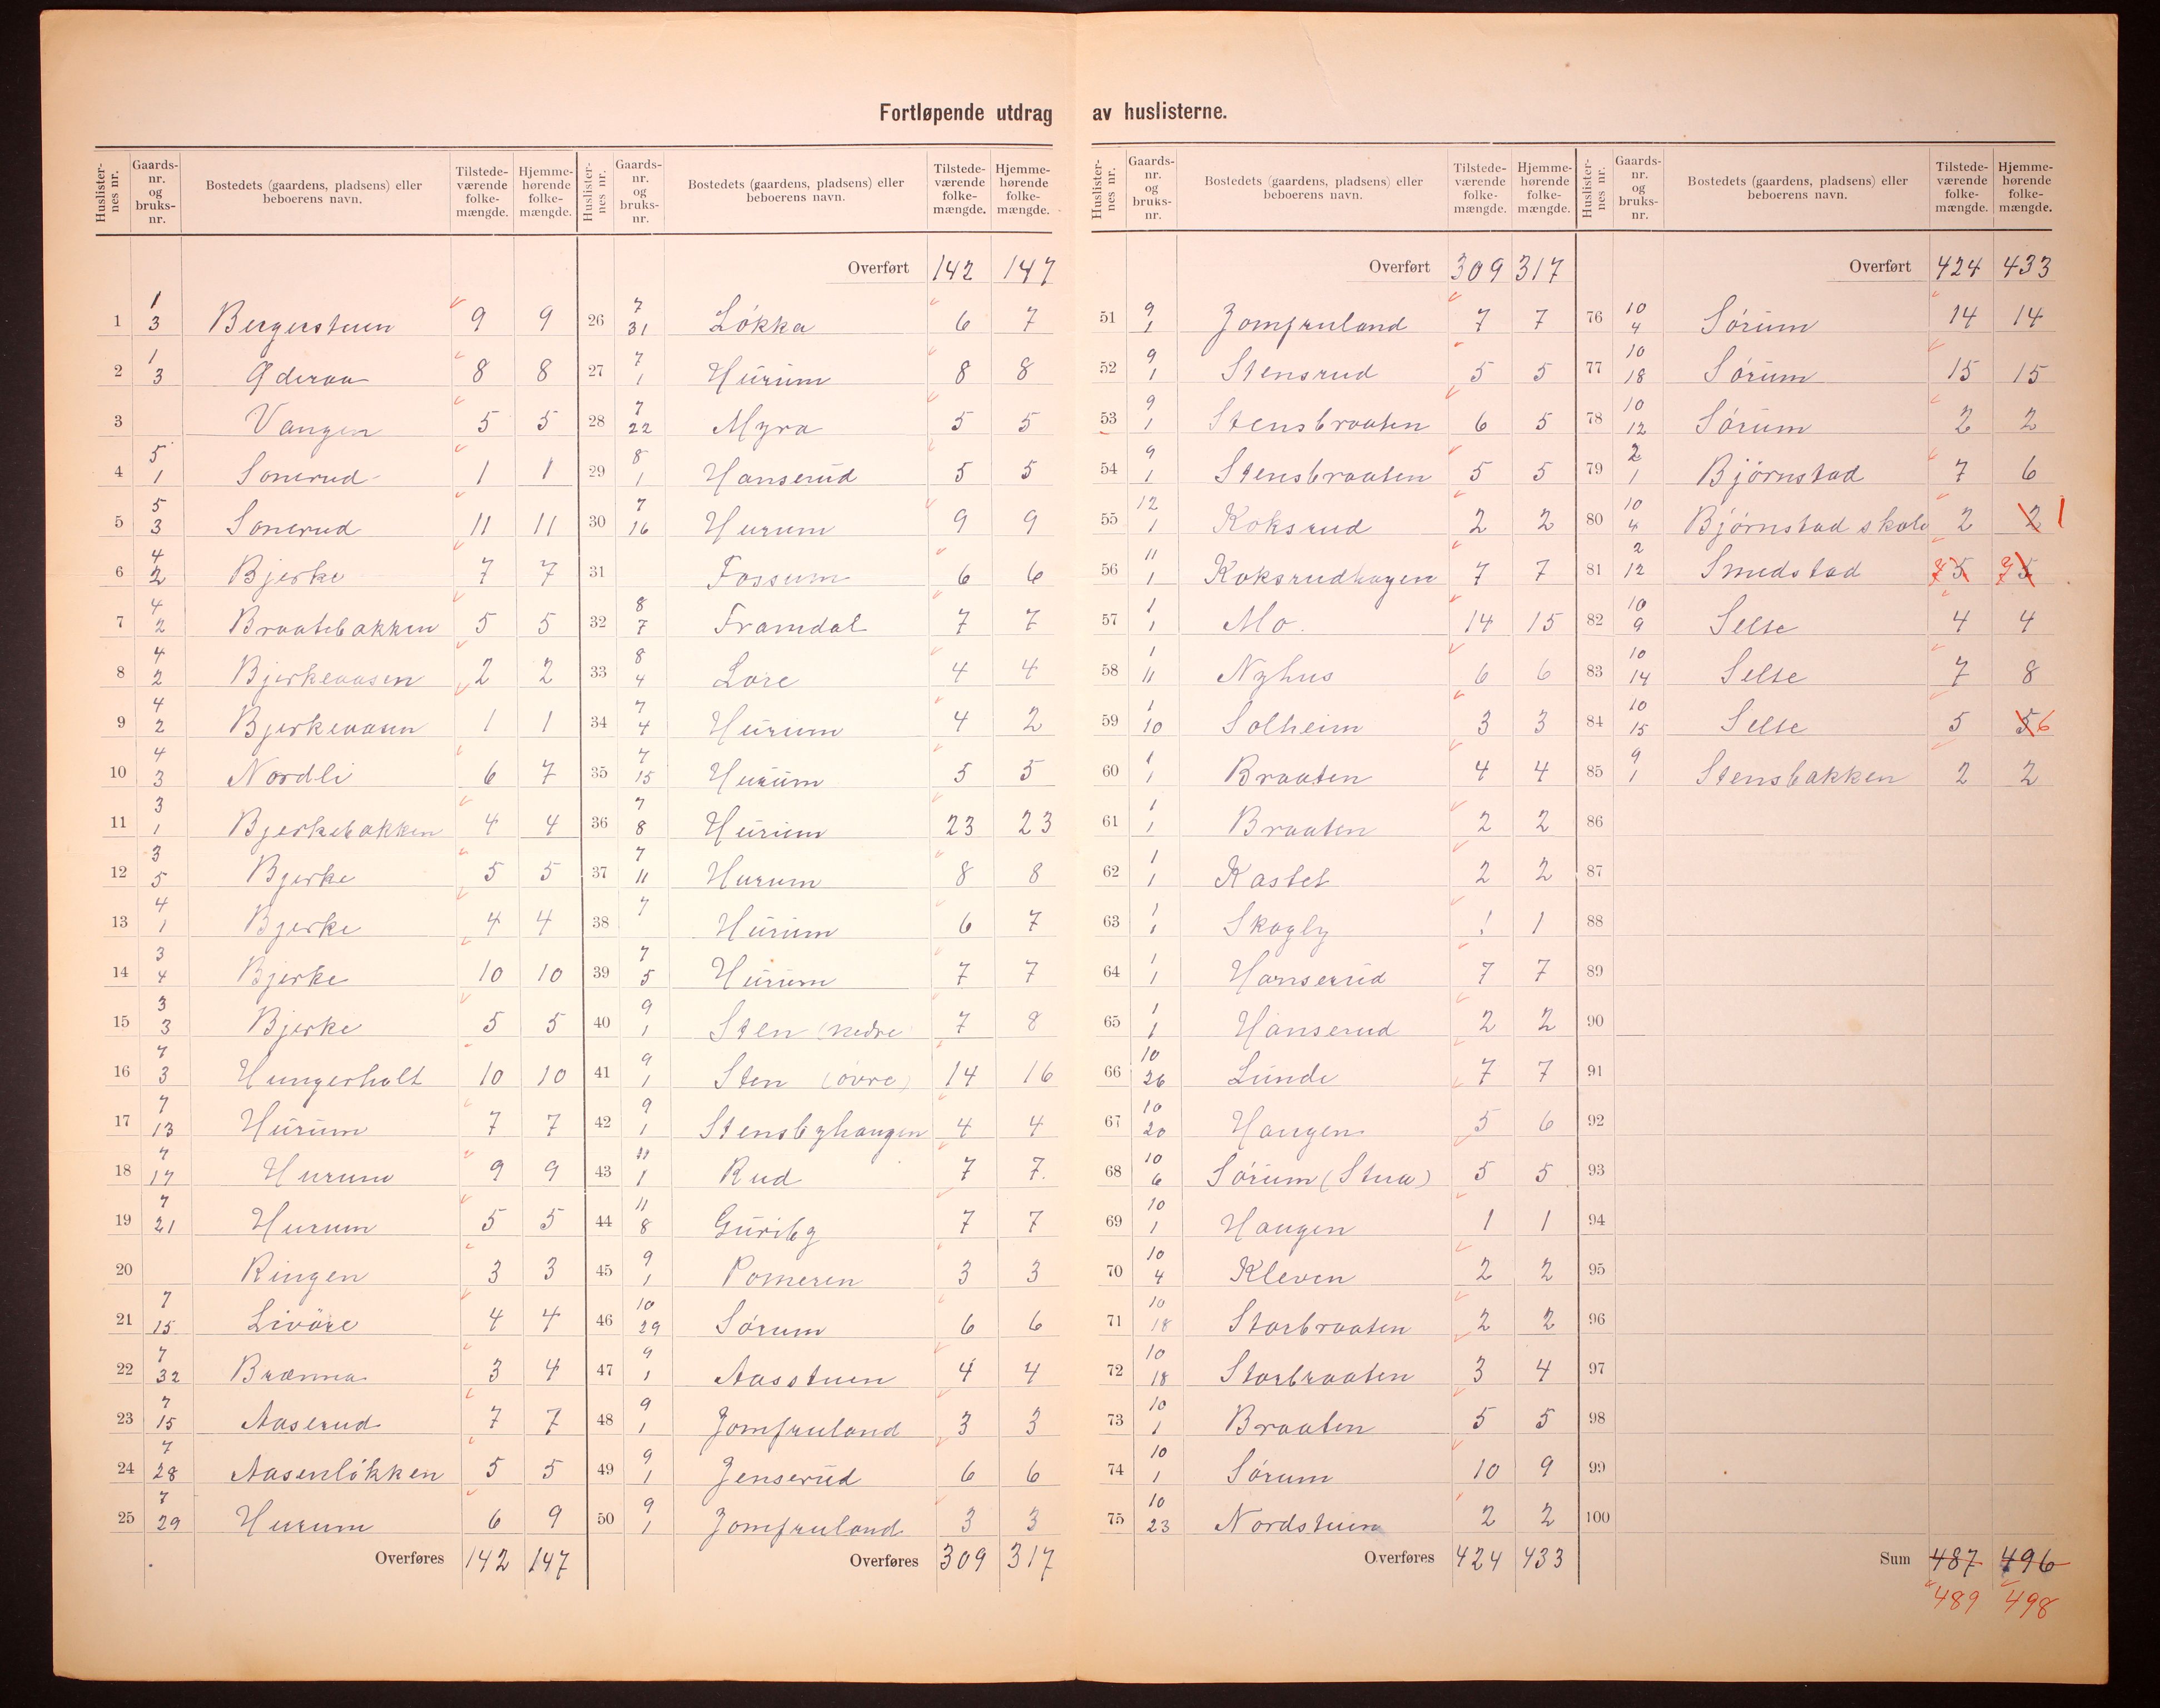 Fortløpende utdrag av huslisterne.
Huslisternes nr. | Gaards-nr. og bruks-nr. | Bostedets (gaardens, pladsens) eller beboerens navn. | Tilstede-værende folke-mængde. | Hjemme-hørende folke-mængde.
1 | 1 3 | Bergerstuen | 9 | 9
2 | 1 3 | Øderaa | 8 | 8
3 | | Vangen | 5 | 5
4 | 5 1 | Sonerud | 1 | 1
5 | 5 3 | Sonerud | 11 | 11
6 | 4 2 | Bjerke | 7 | 7
7 | 4 2 | Braatebakken | 5 | 5
8 | 4 2 | Bjerkeaasen | 2 | 2
9 | 4 2 | Bjerkeaasen | 1 | 1
10 | 4 3 | Nordli | 6 | 7
11 | 3 1 | Bjerkebakken | 4 | 4
12 | 3 5 | Bjerke | 5 | 5
13 | 4 1 | Bjerke | 4 | 4
14 | 3 4 | Bjerke | 10 | 10
15 | 3 3 | Bjerke | 5 | 5
16 | 7 3 | Hungerholt | 10 | 10
17 | 7 13 | Hurum | 7 | 7
18 | 7 17 | Hurum | 9 | 9
19 | 7 21 | Hurum | 5 | 5
20 | | Ringen | 3 | 3
21 | 7 15 | Livöre | 4 | 4
22 | 7 32 | Brænna | 3 | 4
23 | 7 15 | Aaserud | 7 | 7
24 | 7 28 | Aasenløkken | 5 | 5
25 | 7 29 | Hurum | 6 | 9
Overføres | 142 | 147
Huslisternes nr. | Gaards-nr. og bruks-nr. | Bostedets (gaardens, pladsens) eller beboerens navn. | Tilstede-værende folke-mængde. | Hjemme-hørende folke-mængde.
Overført | 142 | 147
26 | 7 31 | Løkka | 6 | 7
27 | 7 1 | Hurum | 8 | 8
28 | 7 22 | Myra | 5 | 5
29 | 8 1 | Hanserud | 5 | 5
30 | 7 16 | Hurum | 9 | 9
31 | | Fossum | 6 | 6
32 | 8 7 | Framdal | 7 | 7
33 | 8 4 | Løre | 4 | 4
34 | 7 4 | Hurum | 4 | 2
35 | 7 15 | Hurum | 5 | 5
36 | 7 8 | Hurum | 23 | 23
37 | 7 11 | Hurum | 8 | 8
38 | 7 | Hurum | 6 | 7
39 | 7 5 | Hurum | 7 | 7
40 | 9 1 | Sten (nedre | 7 | 8
41 | 9 1 | Sten (øvre) | 14 | 16
42 | 9 1 | Stensbyhaugen | 4 | 4
43 | 11 1 | Rud | 7 | 7.
44 | 11 8 | Guriby | 7 | 7
45 | 9 1 | Pomeren | 3 | 3
46 | 10 29 | Sørum | 6 | 6
47 | 9 1 | Aasstuen | 4 | 4
48 | 9 1 | Jomfruland | 3 | 3
49 | 9 1 | Jenserud | 6 | 6
50 | 9 1 | Jomfruland | 3 | 3
Overføres | 309 | 317
Huslisternes nr. | Gaards-nr. og bruks-nr. | Bostedets (gaardens, pladsens) eller beboerens navn. | Tilstede-værende folke-mængde. | Hjemme-hørende folke-mængde.
Overført | 309 | 317
51 | 9 1 | Jomfruland | 7 | 7
52 | 9 1 | Stensrud | 5 | 5
53 | 9 1 | Stensbraaten | 6 | 5
54 | 9 1 | Stensbraaten | 5 | 5
55 | 12 1 | Koksrud | 2 | 2
56 | 11 1 | Koksrudhagen | 7 | 7
57 | 1 1 | Mo. | 14 | 15
58 | 1 11 | Nyhus | 6 | 6
59 | 1 10 | Solheim | 3 | 3
60 | 1 1 | Braaten | 4 | 4
61 | 1 1 | Braaten | 2 | 2
62 | 1 1 | Kastet | 2 | 2
63 | 1 1 | Skogly | 1 | 1
64 | 1 1 | Hanserud | 7 | 7
65 | 1 1 | Hanserud | 2 | 2
66 | 10 26 | Lunde | 7 | 7
67 | 10 20 | Haugen | 5 | 6
68 | 10 6 | Sørum (Stua) | 5 | 5
69 | 10 1 | Haugen | 1 | 1
70 | 10 4 | Kleven | 2 | 2
71 | 10 18 | Storbraaten | 2 | 2
72 | 10 18 | Storbraaten | 3 | 4
73 | 10 1 | Braaten | 5 | 5
74 | 10 1 | Sørum | 10 | 9
75 | 10 23 | Nordstuen | 2 | 2
Overføres | 424 | 433
Huslisternes nr. | Gaards-nr. og bruks-nr. | Bostedets (gaardens, pladsens) eller beboerens navn. | Tilstede-værende folke-mængde. | Hjemme-hørende folke-mængde.
Overført | 424 | 433
76 | 10 4 | Sørum | 14 | 14
77 | 10 18 | Sørum | 15 | 15
78 | 10 12 | Sørum | 2 | 2
79 | 2 1 | Bjørnstad | 7 | 6
80 | 10 4 | Bjørnstad skole | 2 | 2 1
81 | 2 12 | Smedstad | 7 5 | 7 5
82 | 10 9 | Selte | 4 | 4
83 | 10 14 | Selte | 7 | 8
84 | 10 15 | Selte | 5 | 5 6
85 | 9 1 | Stensbakken | 2 | 2
86
87
88
89
90
91
92
93
94
95
96
97
98
99
100
Sum | 487 | 496
489 | 498